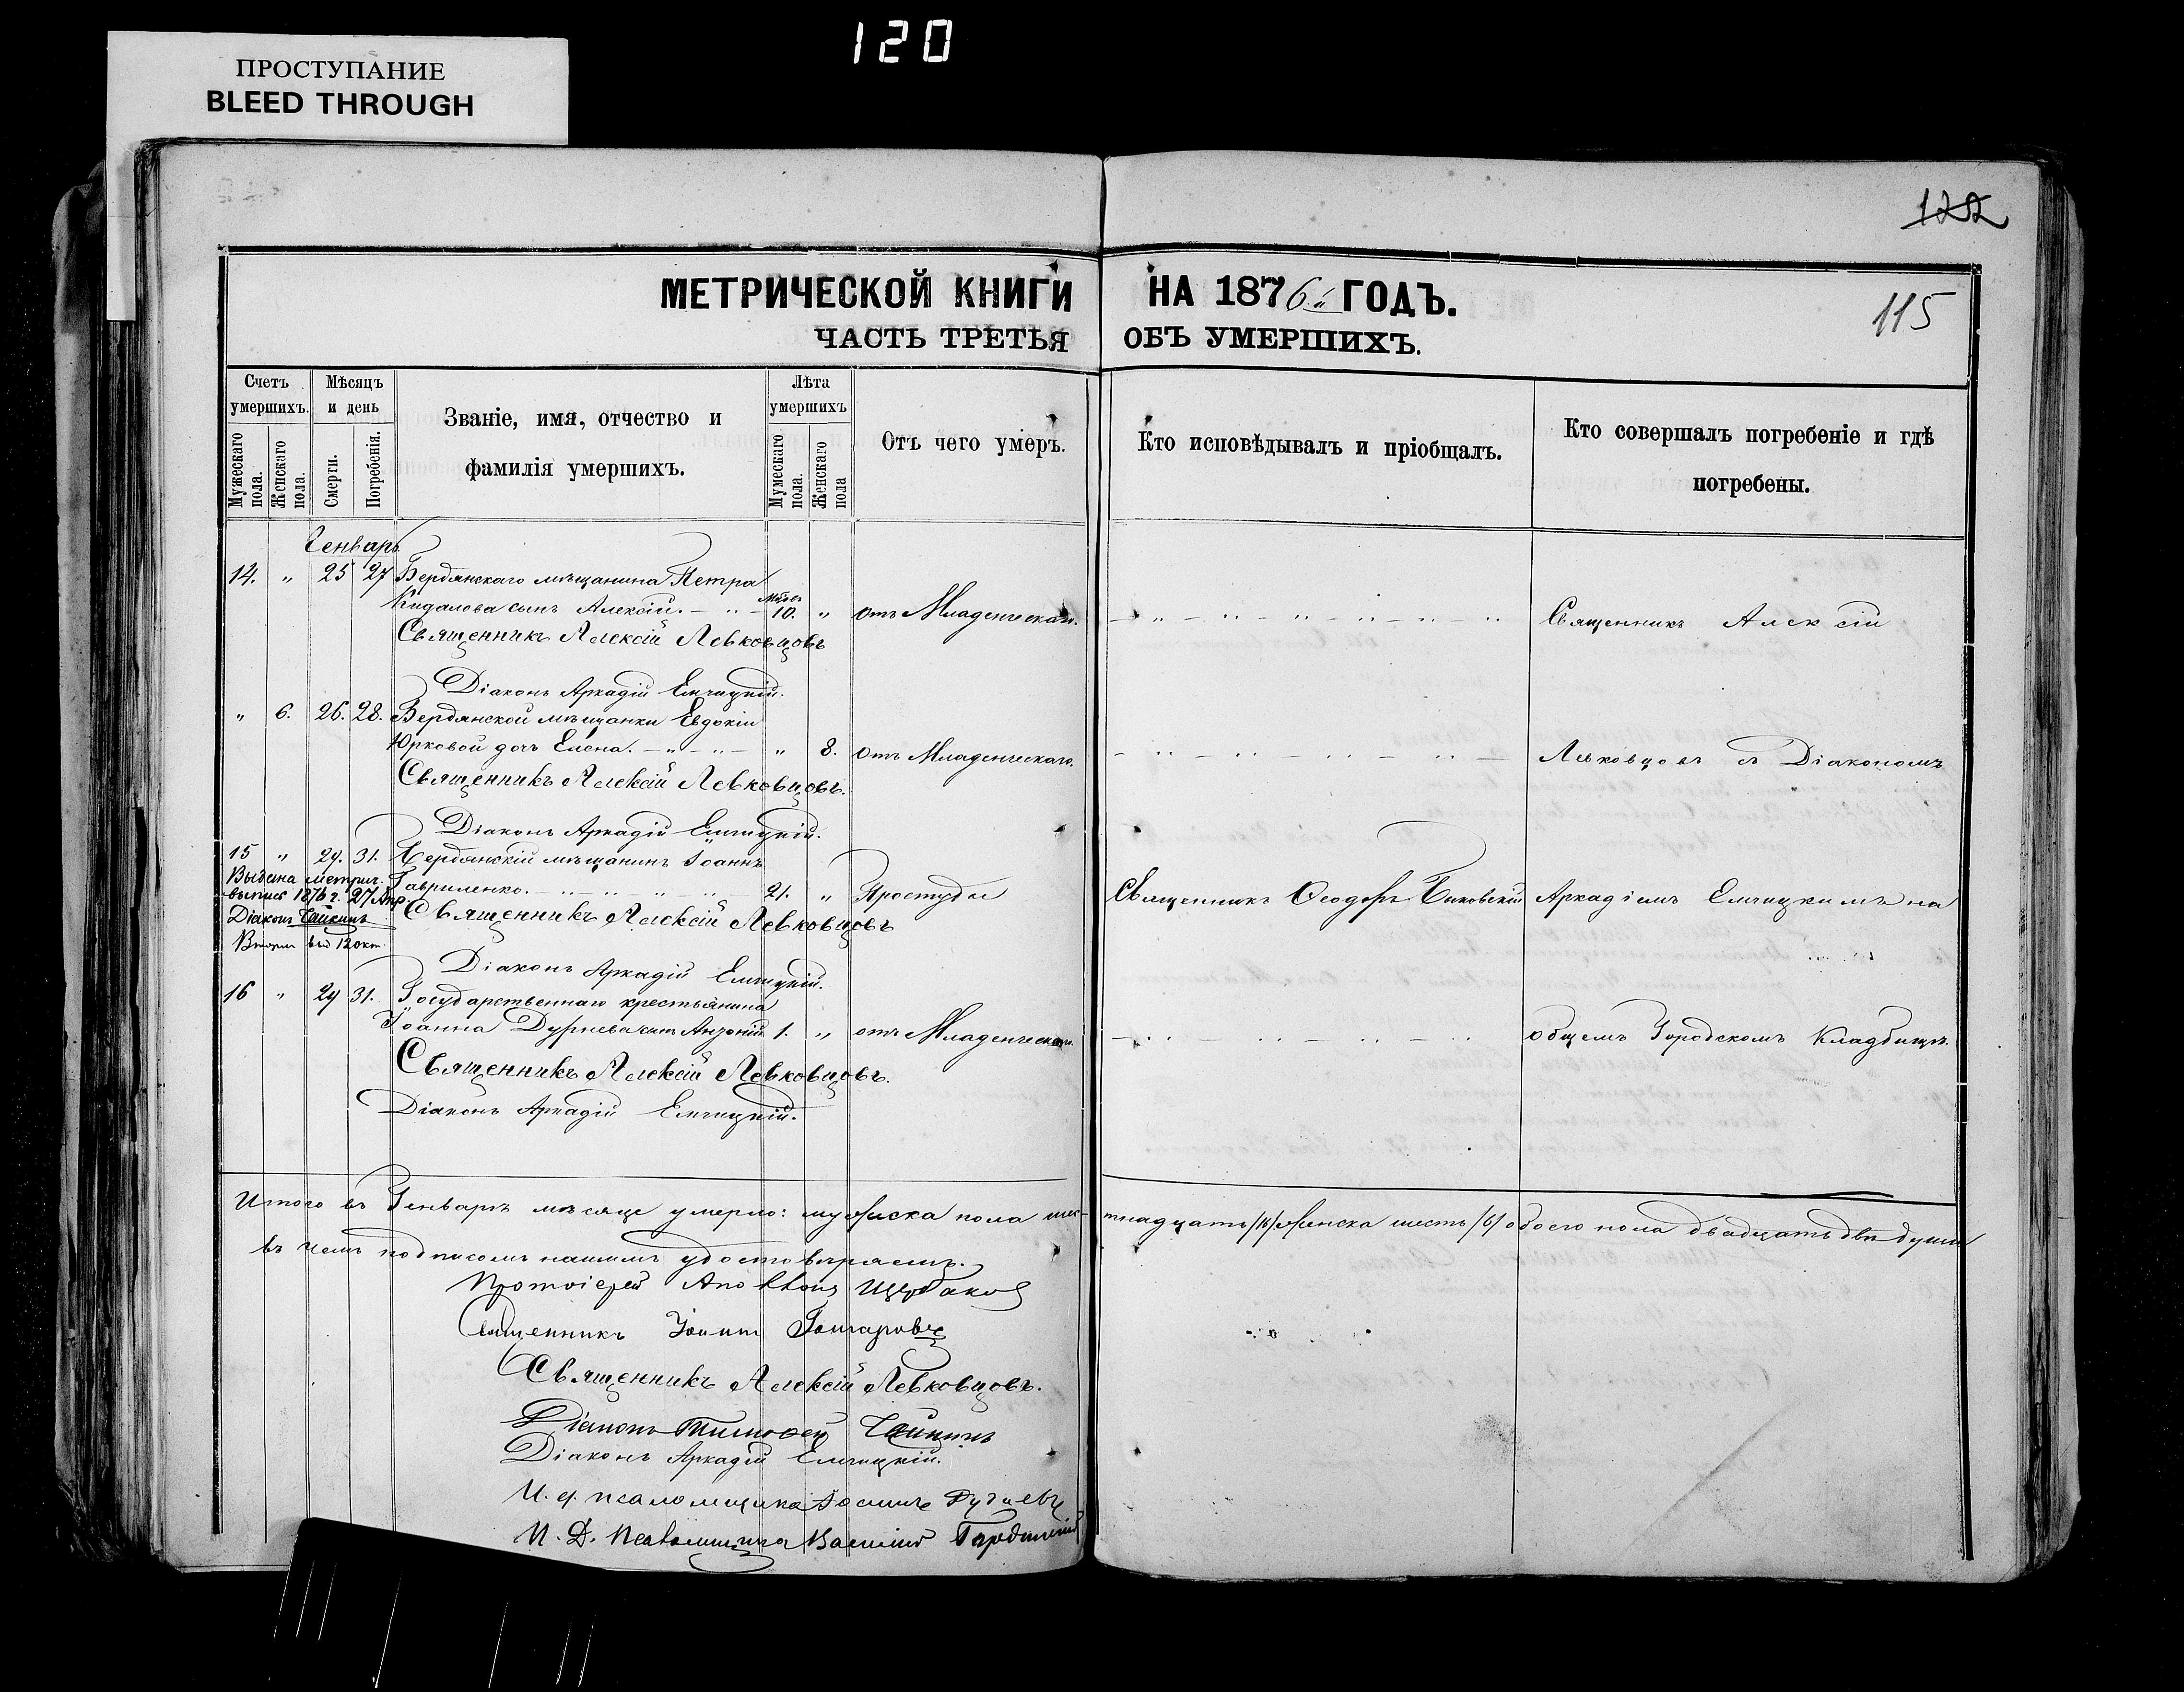 120
ПРОСТУПАНИЕ
BLEED THROUGH
122
115
МЕТРИЧЕСКОЙ КНИГИ НА 1876й ГОДЪ.
ЧАСТЬ ТРЕТЬЯ ОБЪ УМЕРШИХЪ.
Счетъ умершихъ.
Мужескаго пола.
Женскаго пола.
Мѣсяцъ и день
Смерти.
Погребенія.
Званіе, имя, отчество и
фамилія умершихъ.
Лѣта умершихъ
Мужескаго пола.
Женскаго пола
Отъ чего умеръ.
Кто исповѣдывалъ и пріобщалъ.
Кто совершалъ погребеніе и гдѣ
погребены.
Генварь
14. " 25 27 Бердянскаго мѣщанина Петра
Кидалова сынъ Алексій. 10. " отъ Младенческаго. Священникъ Алексій
Священникъ Алексій Левковцовъ
Діаконъ Аркадій Емчицкій.
" 6. 26. 28. Бердянской мѣщанки Евдокіи
Юрковой дочь Елена. " 8. отъ Младенческаго. Левковцовъ съ Діакономъ
Священникъ Алексій Левковцовъ.
Діаконъ Аркадій Емчицкій.
15 " 29. 31. Бердянскій мѣщанинъ Іоаннъ
Гавриленко. 21. " Простуды Священникъ Ѳеодоръ Аркадіемъ Емчицкимъ на
Выдана метрич.
выпись 1876 г. 27 Апр.
Діаконъ Чайкинъ
12 окт.
Священникъ Алексій Левковцовъ
Діаконъ Аркадій Емчицкій.
16 " 29 31. Государственнаго крестьянина
Іоанна Дурнева сынъ Антоній 1. " отъ Младенческаго. общемъ Городскомъ Кладбищѣ.
Священникъ Алексій Левковцовъ.
Діаконъ Аркадій Емчицкій.
Итого въ Генварѣ мѣсяцѣ умерло: мужеска пола шестнадцать /16/ женска шесть /6/ обоего пола двадцать двѣ души
въ чемъ подписомъ нашимъ удостовѣряемъ.
Протоіерей Щербаковъ
Священникъ Іоаннъ Гончаровъ
Священникъ Алексій Левковцовъ.
Діаконъ Тимофей Чайкинъ
Діаконъ Аркадій Емчицкій.
И. д. псаломщика
И. Д. Псаломщика Василій